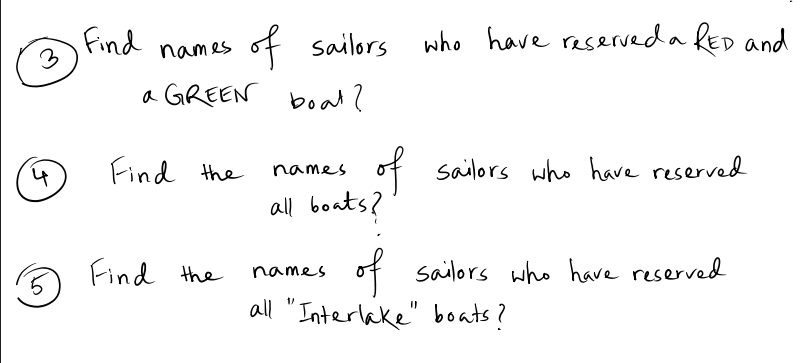 3 Find names of sailors who have reserved a RED and
a GREEN boat?
4 Find the names of sailors who have reserved
all boats?
5 Find the names of sailors who have reserved
all "Interlake" boats?